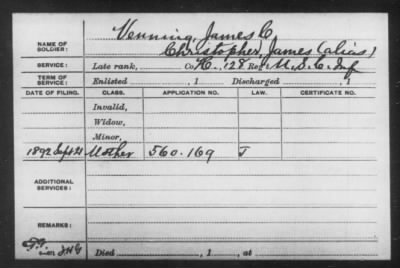 Venning, James C.
NAME OF SOLDIER: Christopher, James (alias)
SERVICE: Late rank, Co. K., 128 Reg. U.S.C. Inf
TERM OF SERVICE: Enlisted , 1 Discharged , 1
DATE OF FILING. CLASS. APPLICATION NO. LAW. CERTIFICATE NO.
Invalid,
Widow,
Minor,
1892 Sept 21 Mother 560.169 J
ADDITIONAL SERVICES:
REMARKS:
6-071
Died , 1 , at